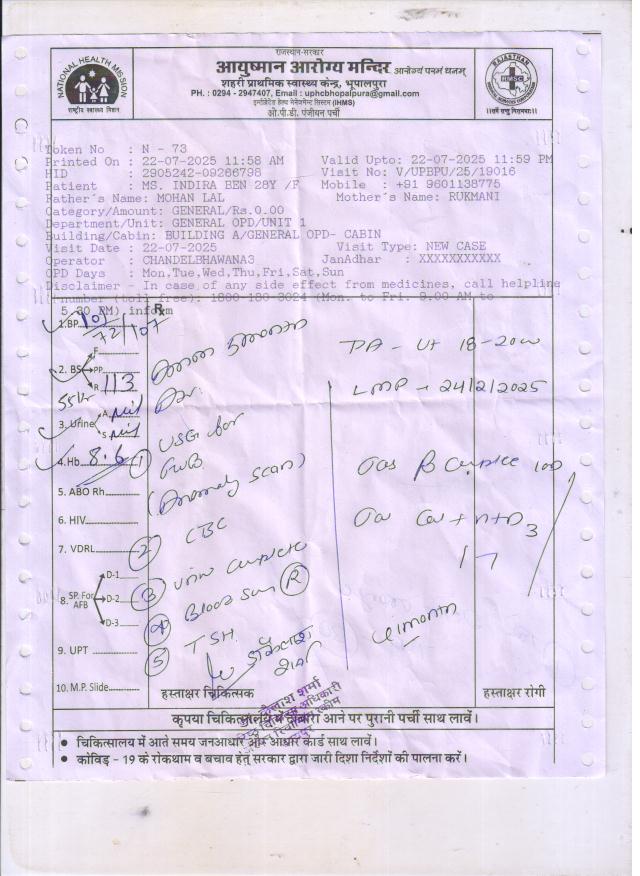 राजस्थान-सरकार
आयुष्मान आरोग्य मन्दिर आरोग्यं परमं धनम्
शहरी प्राथमिक स्वास्थ्य केन्द्र, भूपालपुरा
PH. : 0294 - 2947407, Email : uphcbhopalpura@gmail.com
इन्टीग्रेटेड हेल्थ मेनेजमेन्ट सिस्टम (IHMS)
ओ.पी.डी. पंजीयन पर्ची
NATIONAL HEALTH MISSION
राष्ट्रीय स्वास्थ्य मिशन
RAJASTHAN
Token No : N - 73
Printed On : 22-07-2025 11:58 AM Valid Upto: 22-07-2025 11:59 PM
HID : 2905242-09266798 Visit No: V/UPBPU/25/19016
Patient : MS. INDIRA BEN 28Y /F Mobile : +91 9601138775
Father's Name: MOHAN LAL Mother's Name: RUKMANI
Category/Amount: GENERAL/Rs.0.00
Department/Unit: GENERAL OPD/UNIT 1
Building/Cabin: BUILDING A/GENERAL OPD- CABIN
Visit Date : 22-07-2025 Visit Type: NEW CASE
Operator : CHANDELBHAWANA3 JanAdhar : XXXXXXXXXXX
OPD Days : Mon,Tue,Wed,Thu,Fri,Sat,Sun
Disclaimer - In case of any side effect from medicines, call helpline
number (toll free): 1800 180 3024 (Mon. to Fri. 9.00 AM to
5.30 PM), inform
Rx
1.BP 107
72/107
F
2. BS PP
R 113
A. nil
3. Urine
S nil
4. Hb. 8.6
5. ABO Rh
6. HIV
7. VDRL
D-1
8. SP. For AFB D-2
D-3
9. UPT
10. M.P. Slide
PA - Ut 18-20w
LMP - 24/2/2025
① USG for
FWB
(Anomaly scan)
② CBC
③ Urine complete
④ Blood Sugar (R)
⑤ TSH
B complex 10D
D3
हस्ताक्षर चिकित्सक
हस्ताक्षर रोगी
कृपया चिकित्सालय में दोबारा आने पर पुरानी पर्ची साथ लावें।
● चिकित्सालय में आते समय जनआधार और आधार कार्ड साथ लावें।
● कोविड़ - 19 के रोकथाम व बचाव हेतु सरकार द्वारा जारी दिशा निर्देशों की पालना करें।